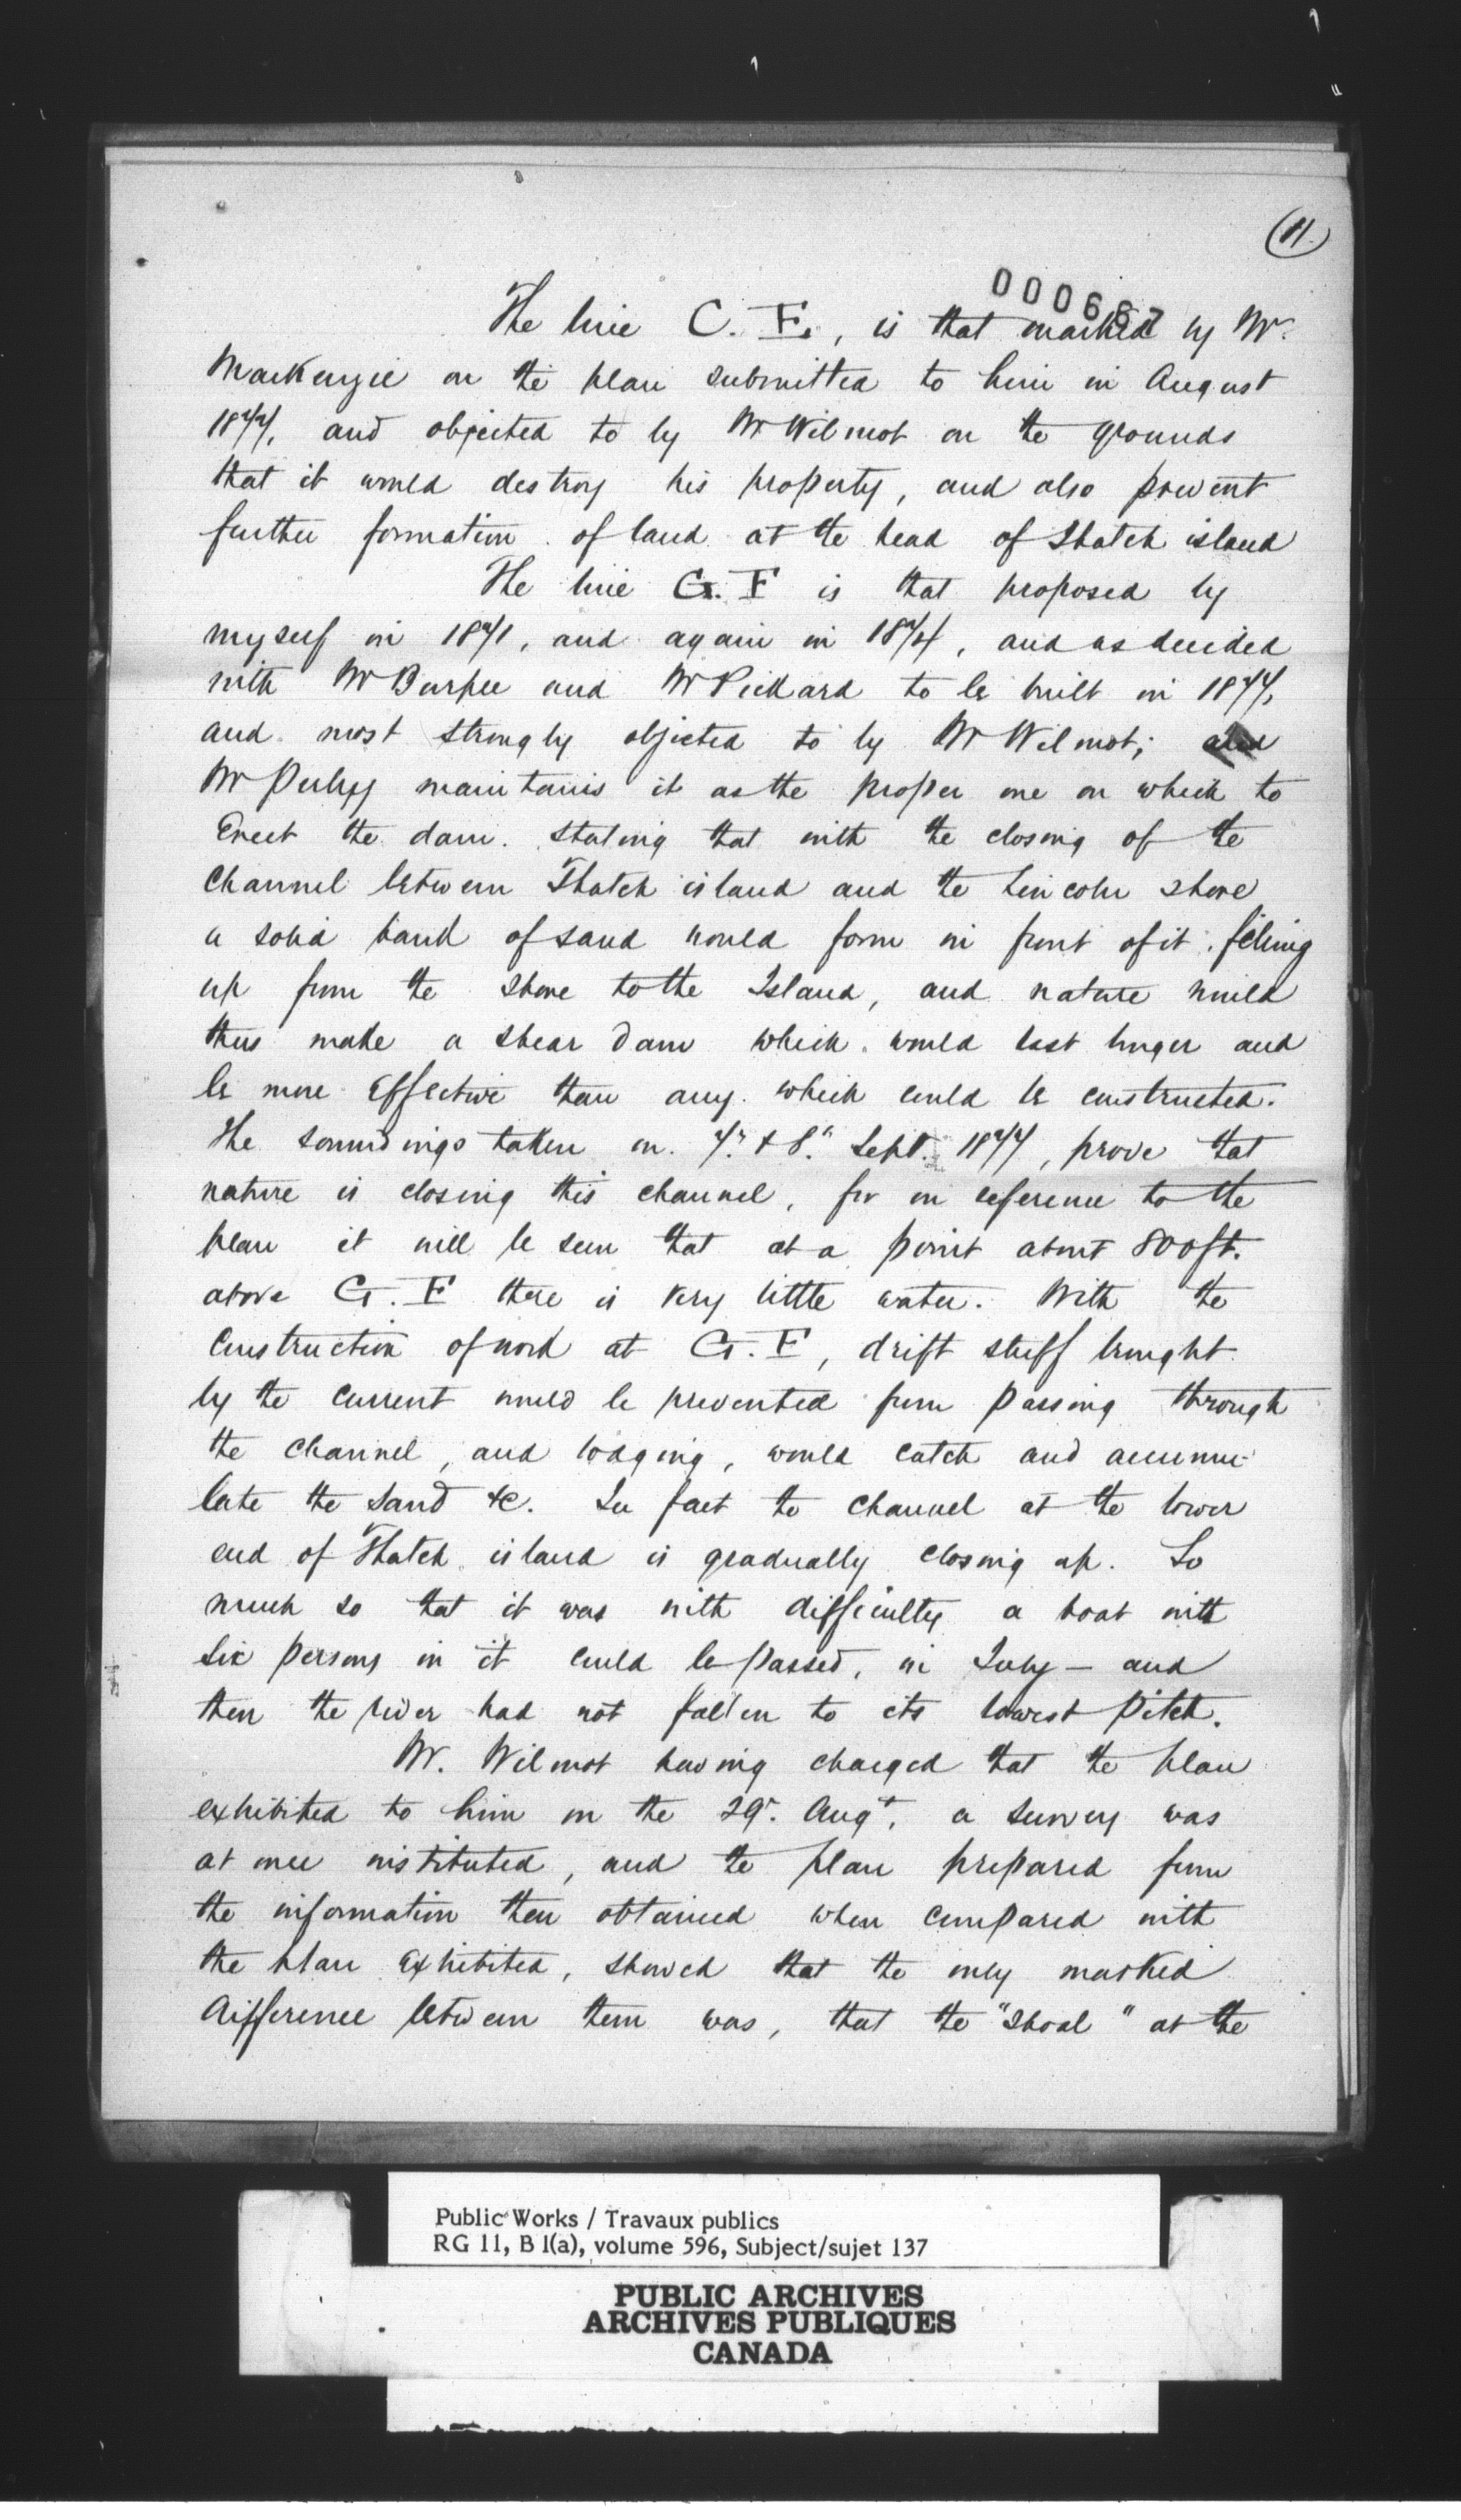 (11.)
000667
The line C. E., is that marked by Mr.
MacKenzie on the plan submitted to him in August
1877, and objected to by Mr Wilmot on the grounds
that it would destroy his property, and also prevent
further formation of land at the head of Thatch island
The line G. F is that proposed by
myself in 1871, and again in 1874, and as decided
with Mr Burpee and Mr Pickard to be built in 1877,
and most strongly objected to by Mr Wilmot; and
Mr Perley maintains it as the proper one on which to
Erect the dam. Stating that with the closing of the
Channel between Thatch island and the Lincoln shore
a solid bank of sand would form in front of it filling
up from the shore to the Island, and nature would
thus make a shear dam which would last longer and
be more Effective than any which could be constructed.
The soundings taken on 7th & 8th Sept. 1877, prove that
nature is closing this channel, for on reference to the
plan it will be seen that at a point about 800 ft.
above G. F there is very little water. With the
Construction of work at G. F, drift stuff brought
by the current would be prevented from passing through
the channel, and lodging, would catch and accumu-
late the sand &c. In fact the channel at the lower
end of Thatch island is gradually closing up. So
much so that it was with difficulty a boat with
six persons in it could be passed, in July - and
then the river had not fallen to its lowest pitch.
Mr. Wilmot having charged that the plan
exhibited to him on the 29th Augt, a survey was
at once instituted, and the plan prepared from
the information then obtained when compared with
the plan Exhibited, showed that the only marked
difference between them was, that the "Shoal" at the
Public Works / Travaux publics
RG 11, B 1(a), volume 596, Subject/sujet 137
PUBLIC ARCHIVES
ARCHIVES PUBLIQUES
CANADA